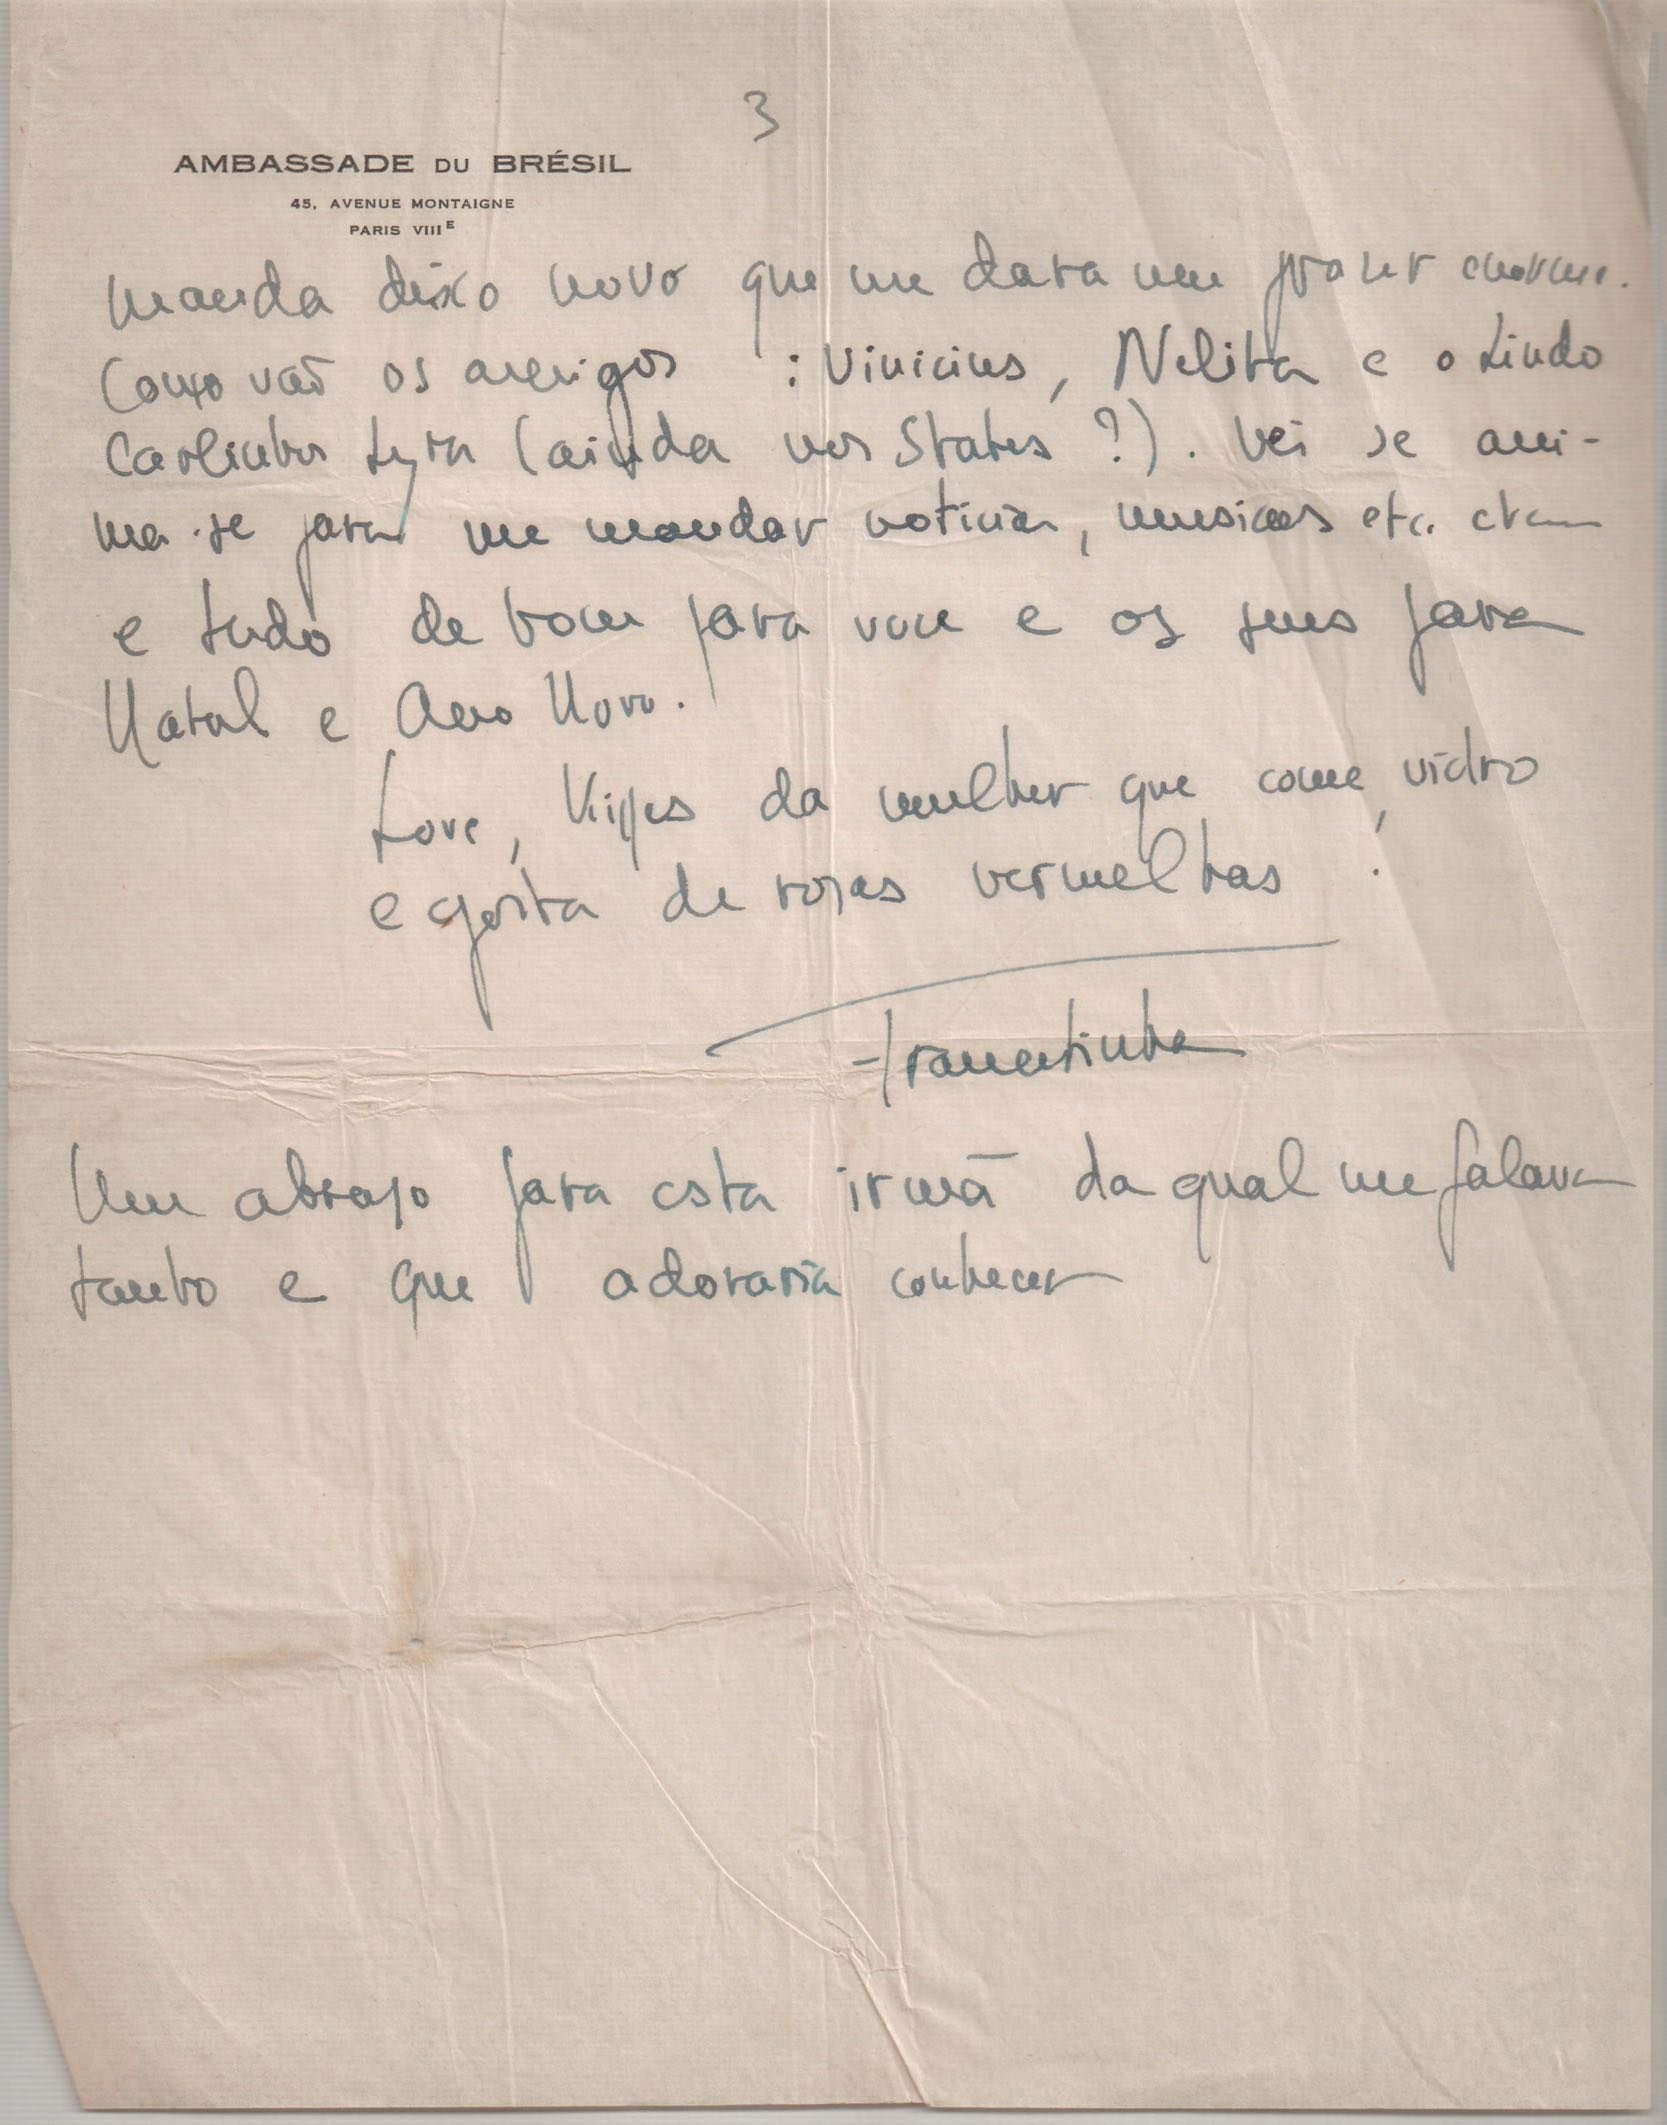 3
AMBASSADE DU BRÉSIL
45, AVENUE MONTAIGNE
PARIS VIIIE
manda disco novo que me dara um prazer enorme.
Como vão os amigos : Vinicius, Nelita e o Lindo
Carlinhos Lyra (ainda nos States ?). Vei se ani-
ma-se para me mandar noticias, musicas etc.
e tudo de bom para voce e os seus para
Natal e Ano Novo.
Love, Kisses da mulher que come vidro
e gosta de rosas vermelhas
Um abraço para esta irmã da qual me falava
tanto e que adoraria conhecer